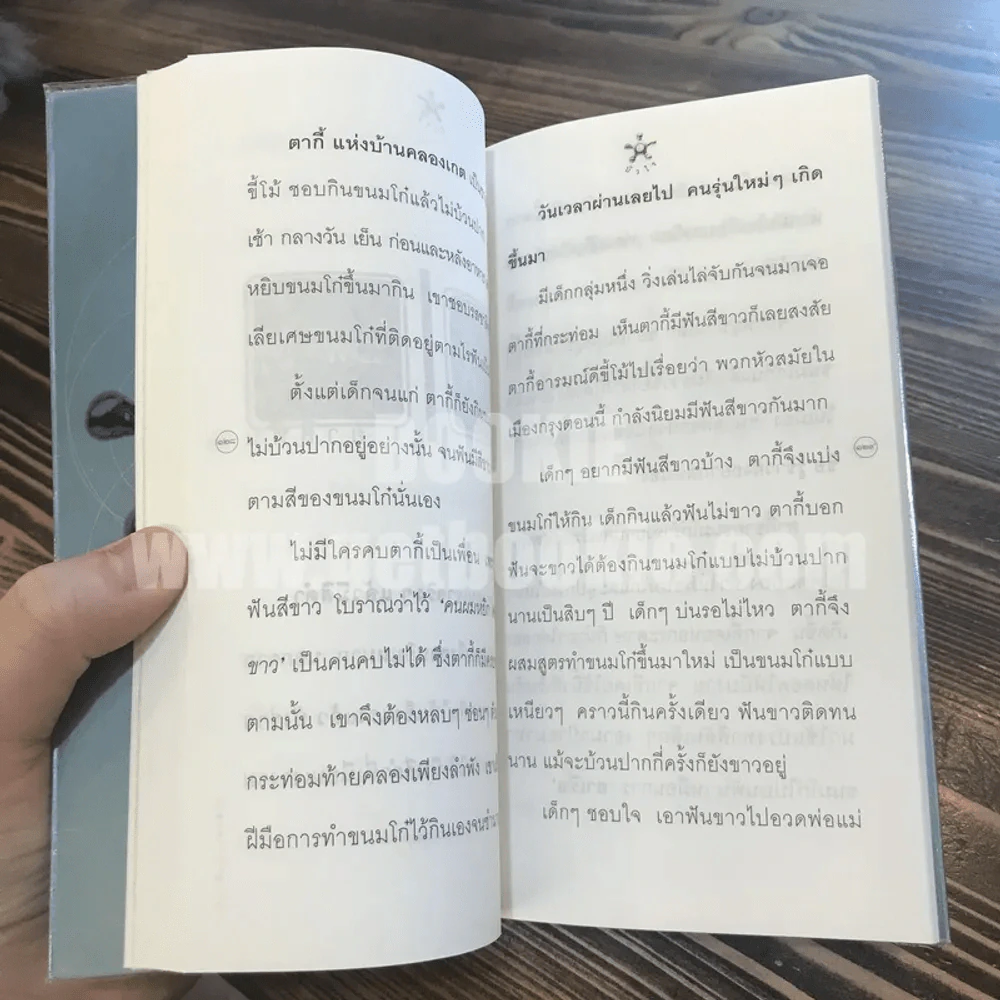 ตากี้ แห่งบ้านคลองเกต
ขี้โม้ ชอบกินขนมโก๋แล้วไม่บ้วนปาก
เช้า กลางวัน เย็น ก่อนและหลังอาหาร
หยิบขนมโก๋ขึ้นมากิน เขาชอบ
เลียเศษขนมโก๋ที่ติดอยู่ตามไรฟัน
ตั้งแต่เด็กจนแก่ ตากี้ก็ยังกิน
๑๒๘
ไม่บ้วนปากอยู่อย่างนั้น จนฟันมี
ตามสีของขนมโก๋นั่นเอง
ไม่มีใครคบตากี้เป็นเพื่อน
ฟันสีขาว โบราณว่าไว้ 'คนผมหยิก
ขาว' เป็นคนคบไม่ได้ ซึ่งตากี้ก็มี
ตามนั้น เขาจึงต้องหลบๆ ซ่อนๆ
กระท่อมท้ายคลองเพียงลำพัง
ฝีมือการทำขนมโก๋ไว้กินเองจน
วันเวลาผ่านเลยไป คนรุ่นใหม่ๆ เกิด
ขึ้นมา
มีเด็กกลุ่มหนึ่ง วิ่งเล่นไล่จับกันจนมาเจอ
ตากี้ที่กระท่อม เห็นตากี้มีฟันสีขาวก็เลยสงสัย
ตากี้อารมณ์ดีขี้โม้ไปเรื่อยว่า พวกหัวสมัยใน
เมืองกรุงตอนนี้ กำลังนิยมมีฟันสีขาวกันมาก
เด็กๆ อยากมีฟันสีขาวบ้าง ตากี้จึงแบ่ง
๑๒๙
ขนมโก๋ให้กิน เด็กกินแล้วฟันไม่ขาว ตากี้บอก
ฟันจะขาวได้ต้องกินขนมโก๋แบบไม่บ้วนปาก
นานเป็นสิบๆ ปี เด็กๆ บ่นรอไม่ไหว ตากี้จึง
ผสมสูตรทำขนมโก๋ขึ้นมาใหม่ เป็นขนมโก๋แบบ
เหนียวๆ คราวนี้กินครั้งเดียว ฟันขาวติดทน
นาน แม้จะบ้วนปากกี่ครั้งก็ยังขาวอยู่
เด็กๆ ชอบใจ เอาฟันขาวไปอวดพ่อแม่